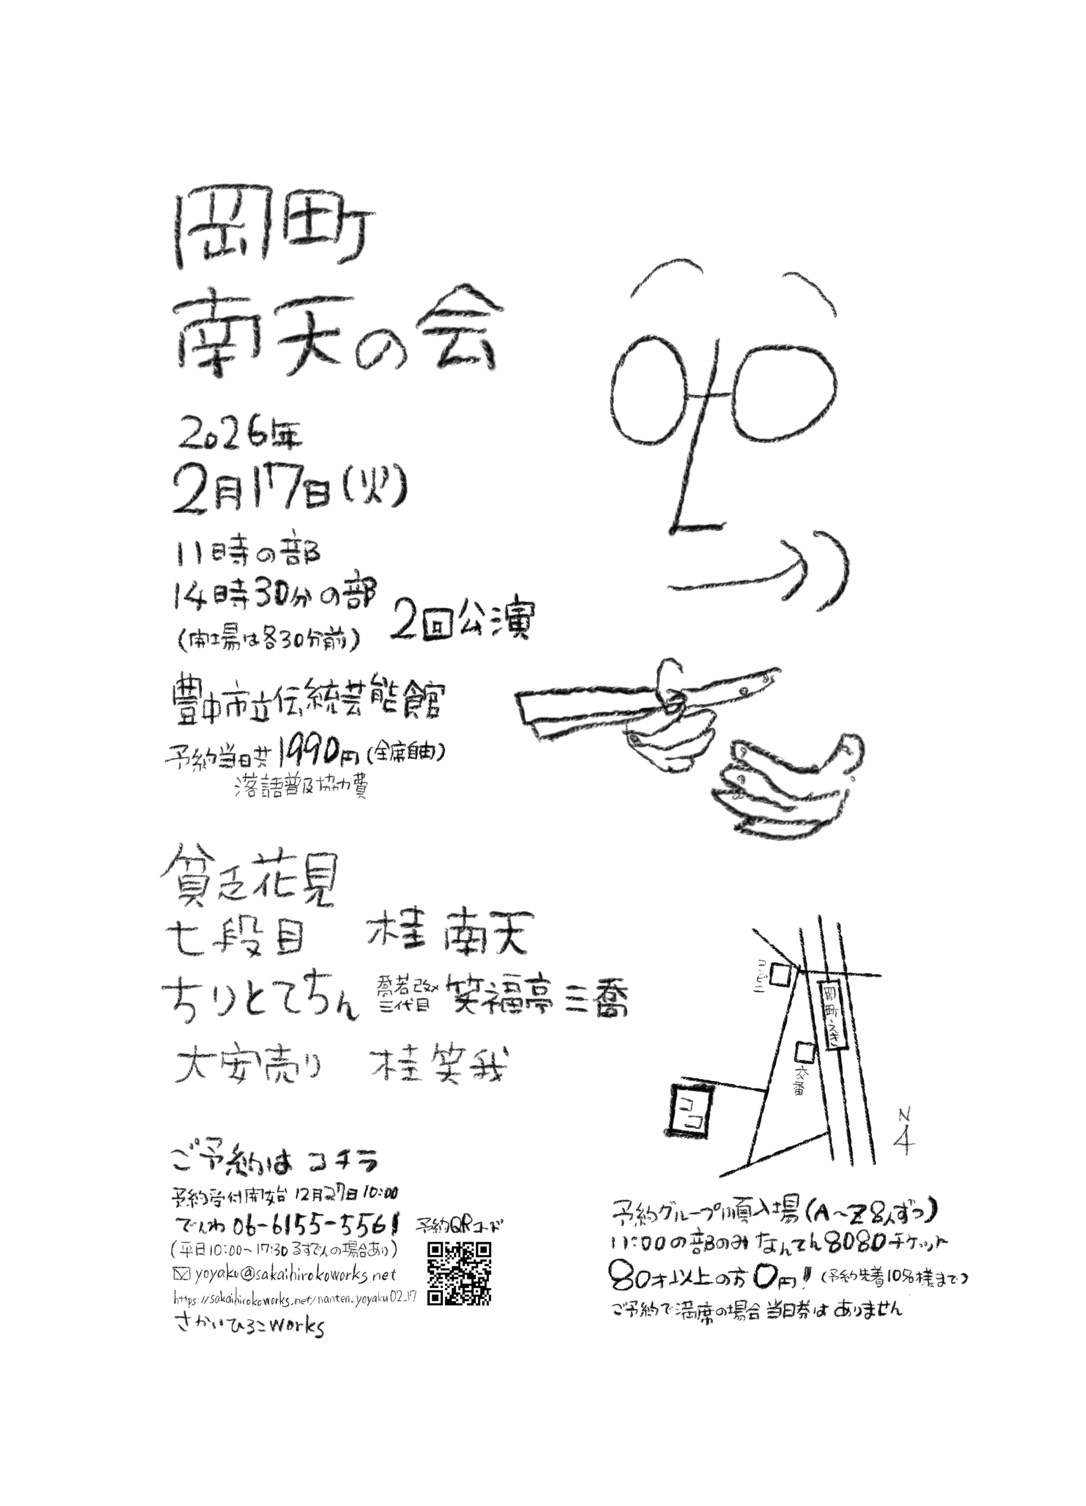 岡町
南天の会
2026年
2月17日(火)
11時の部
14時30分の部
2回公演
(開場は各30分前)
豊中市立伝統芸能館
予約当日共1990円(全席自由)
落語普及協力費
貧乏花見
七段目 桂 南天
ちりとてちん 喬若改メ三代目 笑福亭 三喬
大安売り 桂 笑我
コンビニ
岡町えき
交番
ココ
N
ご予約は コチラ
予約受付開始 12月27日10:00
でんわ 06-6155-5561
(平日10:00~17:30 るすでんの場合あり)
yoyaku@sakaihirokoworks.net
https://sakaihirokoworks.net/nanten_yoyaku02_17
さかいひろこworks
予約QRコード
予約グループ順入場(A~Z 8人ずつ)
11:00の部のみ なんてん8080チケット
80才以上の方 0円!(予約先着10名様まで)
ご予約で満席の場合 当日券は ありません